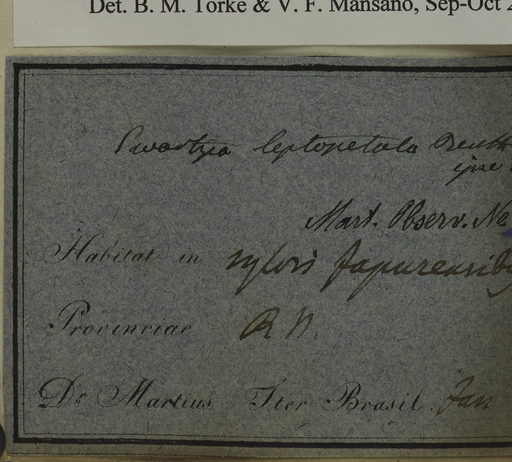 Det. B. M. Torke & V. F. Mansano, Sep-Oct 2
Swartzia leptopetala Benth
ipse
Mart. Observ. No
Habitat in sylvis Japurensib
Provinciae R. N.
Dr. Martius Iter Brasil. Jan